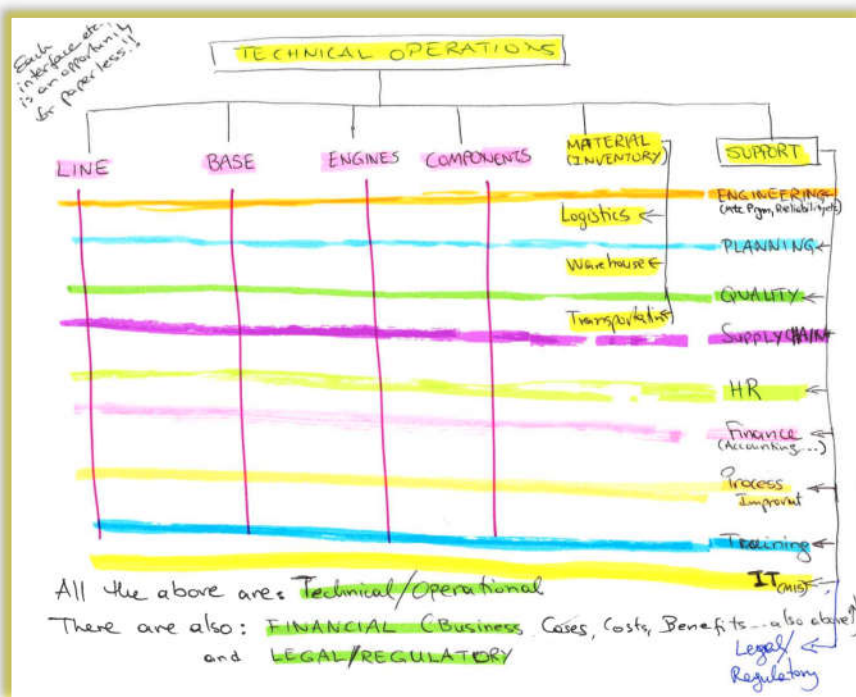 Each
interface etc.,
is an opportunity
for paperless!!
TECHNICAL OPERATIONS
LINE
BASE
ENGINES
COMPONENTS
MATERIAL
(INVENTORY)
Logistics
Warehouse
Transportatin
SUPPORT
ENGINEERING
(Mtc Prgm, Reliability, etc)
PLANNING
QUALITY
SUPPLY CHAIN
HR
Finance
(Accounting...)
Process
Improvnt
Training
IT (MIS)
Legal/
Regulatory
All the above are: Technical/Operational
There are also: FINANCIAL (Business Cases, Costs, Benefits...also above
and LEGAL/REGULATORY